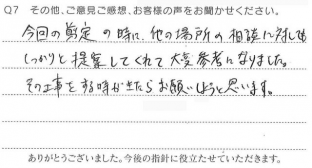 Q7 その他、ご意見ご感想、お客様の声をお聞かせください。
今回の剪定の時に、他の場所の相談に対しても
しっかりと提案してくれて大変参考になりました。
その工事をする時がきたらお願いしようと思います。
ありがとうございました。今後の指針に役立たせていただきます。